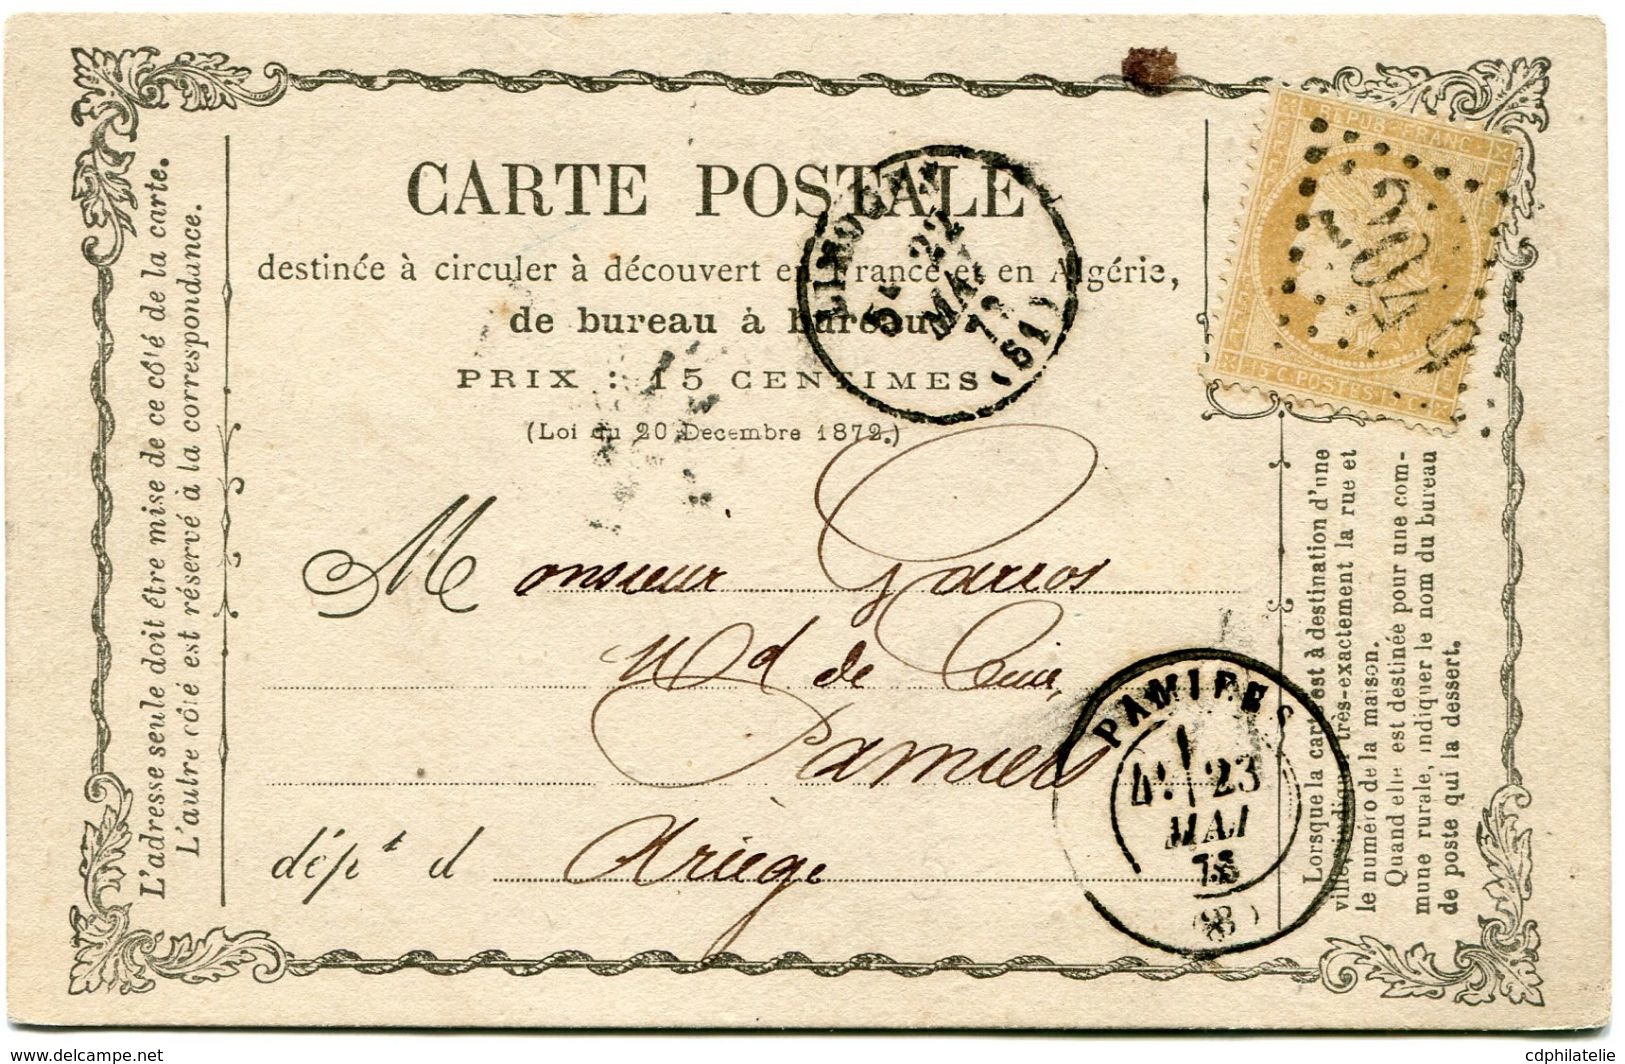 CARTE POSTALE
destinée à circuler à découvert en France et en Algérie,
de bureau à bureau
PRIX : 15 CENTIMES
(Loi du 20 Decembre 1872.)
Monsieur Garros
Md de Cuir,
Pamiers
dépt d Ariége
L'adresse seule doit être mise de ce côté de la carte.
L'autre côté est réservé à la correspondance.
Lorsque la carte est à destination d'une
ville, indiquer très-exactement la rue et
le numéro de la maison.
Quand elle est destinée pour une com-
mune rurale, indiquer le nom du bureau
de poste qui la dessert.
REPUB. FRANC.
15 C. POSTES 15 C.
2049
LIMOUX
5e 22
MAI
73
(81)
PAMIERS
4e 23
MAI
73
(8)
www.delcampe.net
cdphilatelie